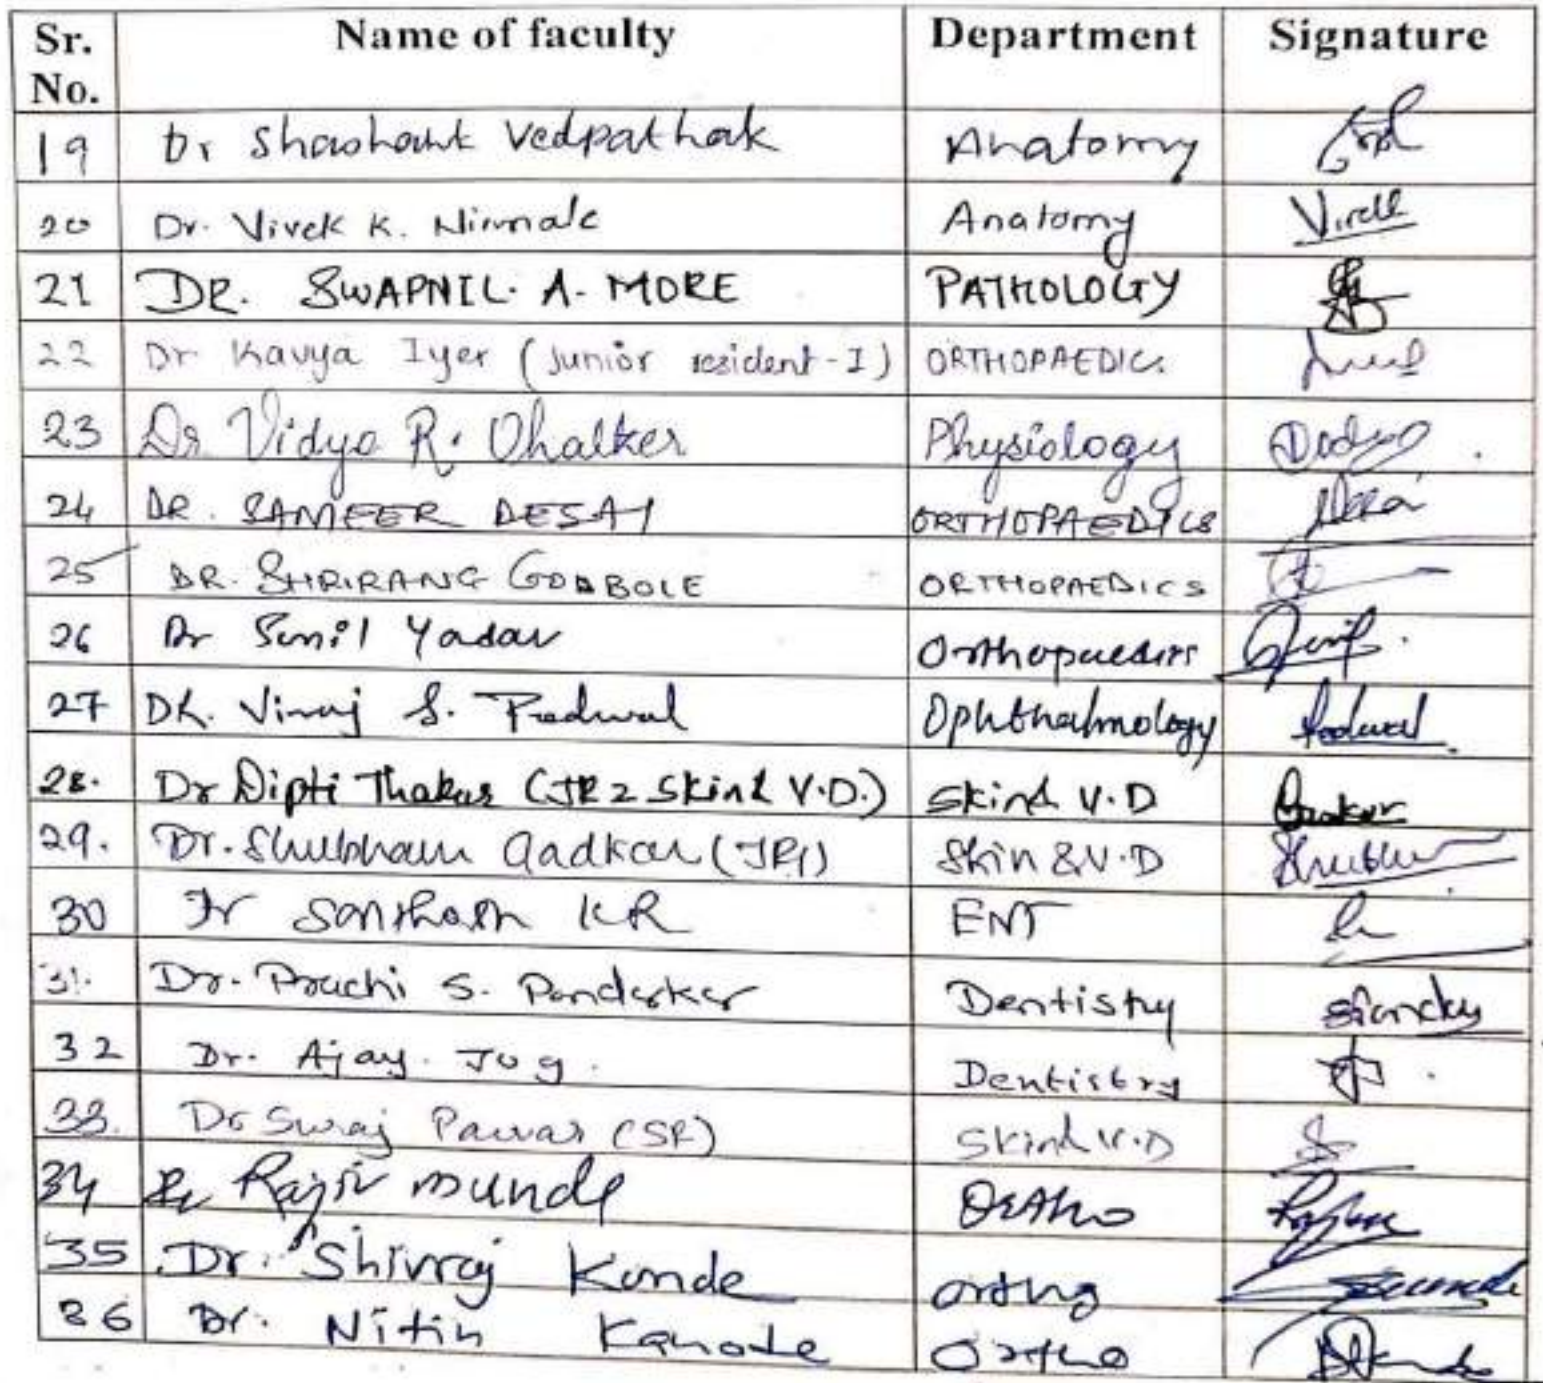 Sr. No. Name of faculty Department Signature
19 Dr Shashank Vedpathak Anatomy
20 Dr. Vivek K. Nirmale Anatomy
21 DR. SWAPNIL. A. MORE PATHOLOGY
22 Dr Kavya Iyer (junior resident-I) ORTHOPAEDICS
23 Dr Vidya R. Dhalker Physiology
24 DR. SAMEER DESAI ORTHOPAEDICS
25 DR. SHRIRANG GODBOLE ORTHOPAEDICS
26 Dr Sunil Yadav Orthopaedics
27 DR. Viraj S. Padwal Ophthalmology Padwal
28. Dr Dipti Thakar (JR2 Skin & V.D.) Skin & V.D
29. Dr. Shubham Gadkar (JR1) Skin & V.D
30 Dr Santhosh KR ENT
31. Dr. Prachi S. Pandarkar Dentistry
32 Dr. Ajay. Jog. Dentistry
33. Dr Suraj Pawar (SR) Skin & V.D
34 Dr Rajiv Munde Ortho
35 Dr. Shivraj Kunde Ortho
36 Dr. Nitin Kanade Ortho